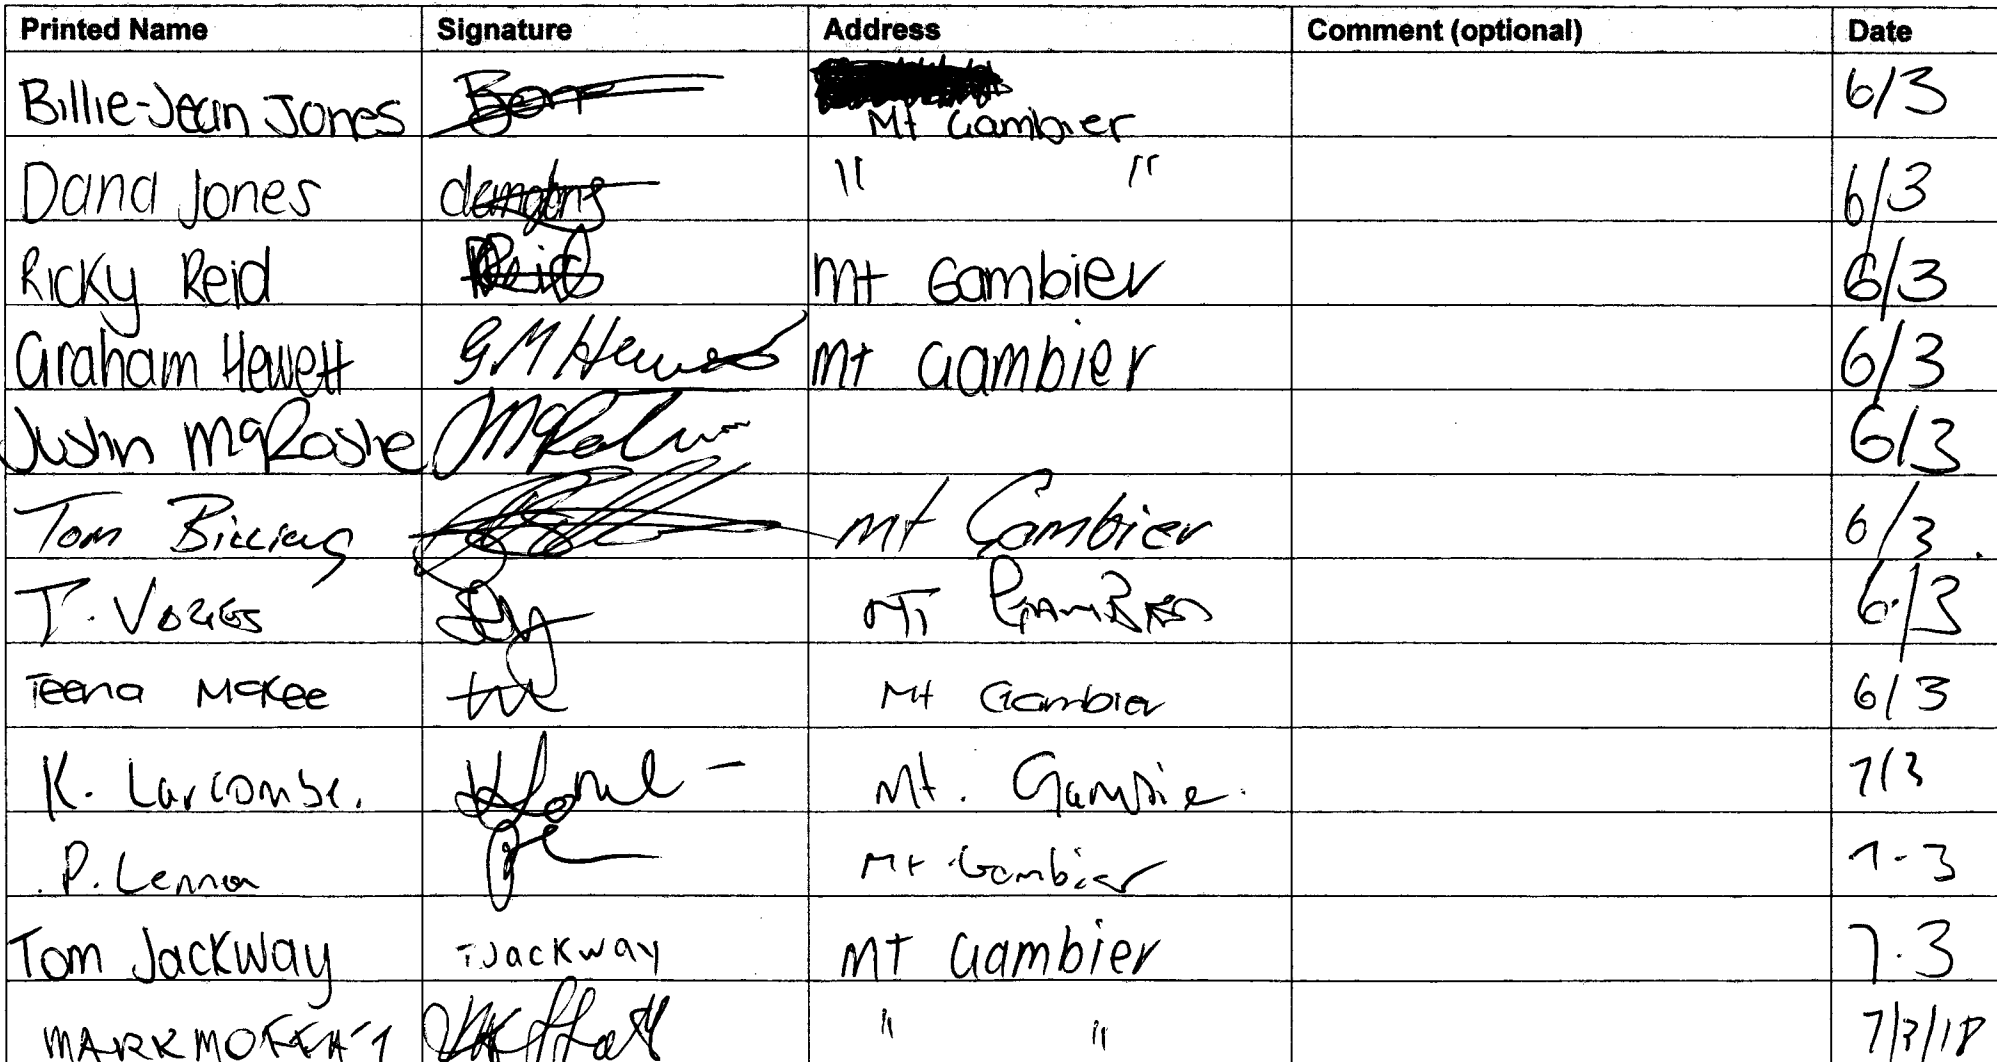 Printed Name Signature Address Comment (optional) Date
Billie-Jean Jones Mt Gambier 6/3
Dana Jones " " 6/3
Ricky Reid Reid Mt Gambier 6/3
Graham Hewett G M Hewett Mt Gambier 6/3
Justin 6/3
Tom Mt Gambier 6/3.
T. Mt Gambier 6/3
Teena McKee Mt Gambier 6/3
K. Larcombe. Mt. Gambie. 7/3
P. Mt Gambier 7-3
Tom Jackway TJackway MT Gambier 7.3
MARK MOFFAT " " 7/3/18